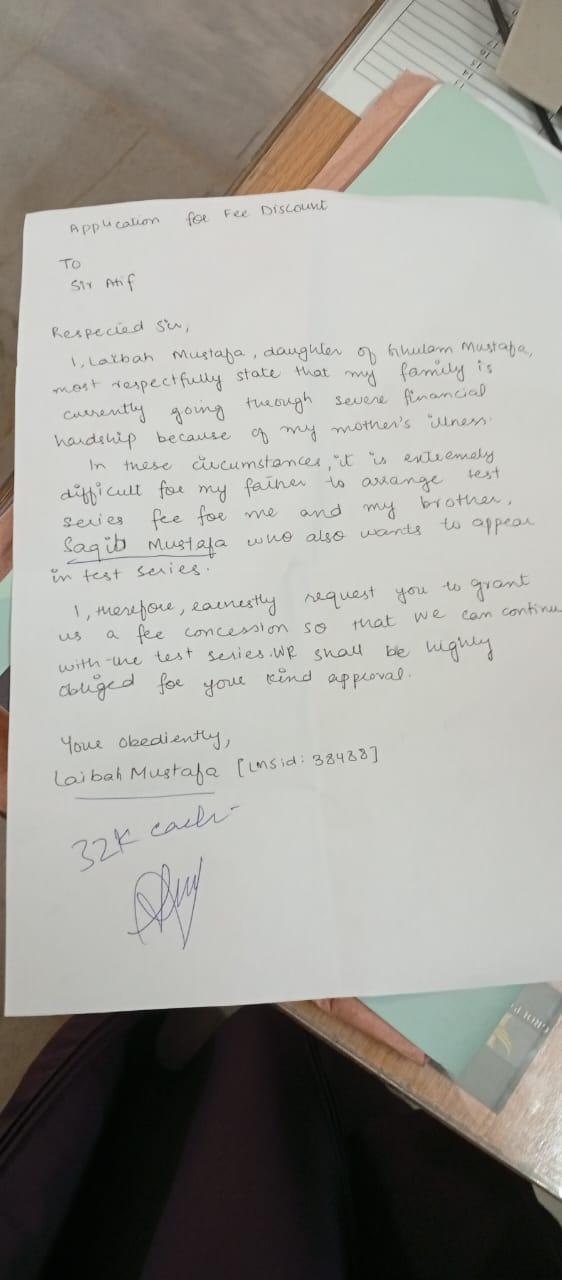 Application for Fee Discount
To
Sir Atif
Respected Sir,
I, Laibah Mustafa, daughter of Ghulam Mustafa,
most respectfully state that my family is
currently going through severe financial
hardship because of my mother's illness.
In these circumstances, it is extremely
difficult for my father to arrange test
series fee for me and my brother,
Saqib Mustafa who also wants to appear
in test series.
I, therefore, earnestly request you to grant
us a fee concession so that we can continue
with the test series. We shall be highly
obliged for your kind approval.
Your obediently,
Laibah Mustafa [LMSid: 38488]
32K each-